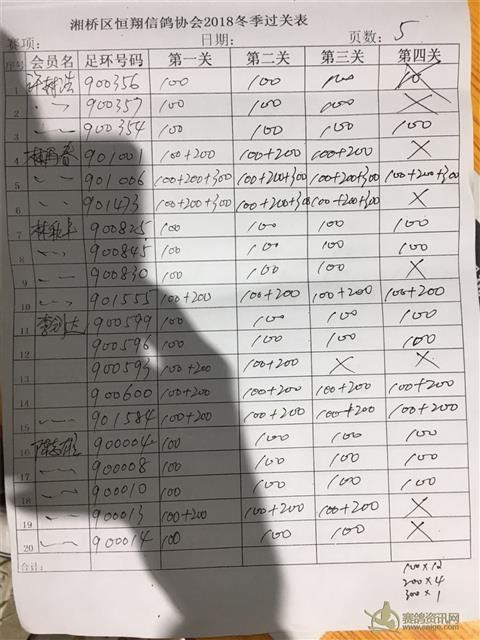 湘桥区恒翔信鸽协会2018冬季过关表
赛项: 日期: 页数: 5
序号 会员名 足环号码 第一关 第二关 第三关 第四关
1 900356 100 100 100
2 〃 900357 100 100 100 ×
3 〃 900354 100 100 100 100
4 901001 100+200 100+200 100+200 ×
5 〃 901006 100+200+300 100+200+300 100+200+300 100+200+300
6 〃 901473 100+200+300 100+200+300 100+200+300 ×
7 900825 100 100 100 100
8 〃 900845 100 100 100 100
9 〃 900830 100 100 100 ×
10 〃 901555 100+200 100+200 100+200 100+200
11 900599 100 100 100 100
12 900596 100 100 100 100
13 900593 100+200 100+200 × ×
14 900600 100+200 100+200 100+200 100+200
15 〃 901584 100+200 100+200 100+200 100+200
16 900004 100 100 100 100
17 〃 900008 100 100 100 100
18 〃 900010 100 100 100 100
19 〃 900013 100+200 100+200 100+200 ×
20 〃 900014 100 100 100 ×
合计:
100×12
200×4
300×1
赛鸽资讯网
www.saige.com